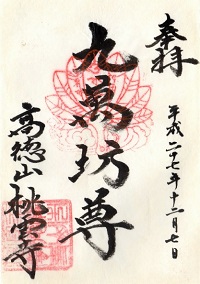 奉拝
平成二十七年十二月七日
九萬坊尊
高徳山桃雲寺